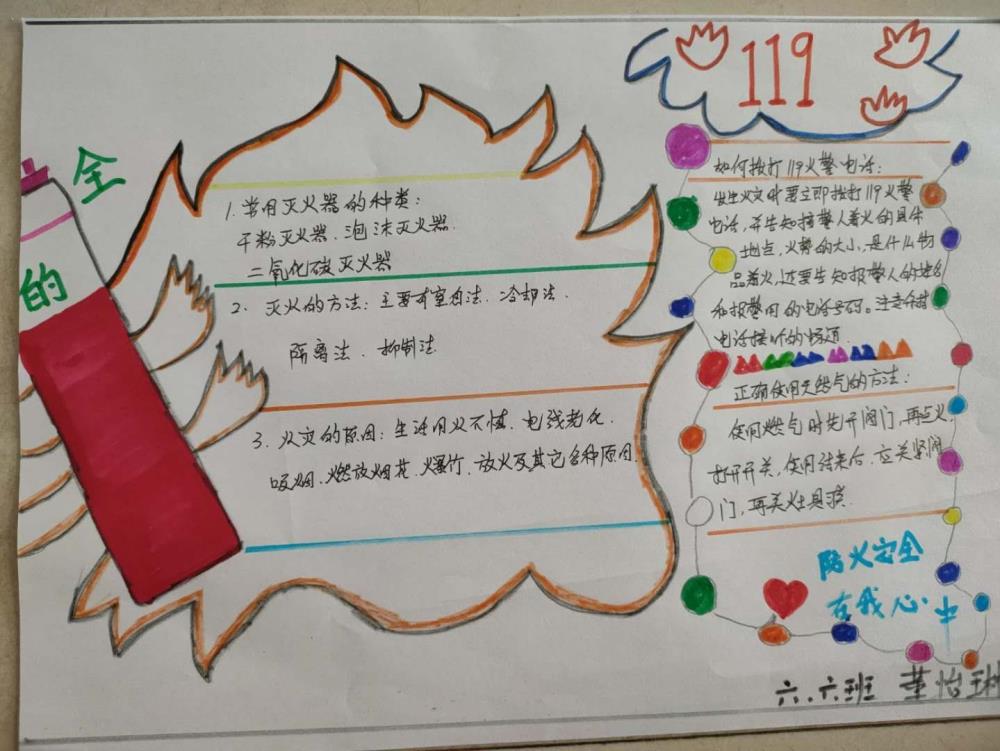 全
的
1. 常用灭火器的种类：
干粉灭火器、泡沫灭火器、
二氧化碳灭火器
2. 灭火的方法：主要有窒息法、冷却法、
隔离法、抑制法
3. 火灾的原因：生活用火不慎、电线老化、
吸烟、燃放烟花、爆竹、放火及其它各种原因
119
如何拨打119火警电话：
发生火灾时要立即拨打119火警
电话，并告知接警人着火的具体
地点，火势的大小，是什么物
品着火，还要告知报警人的姓名
和报警用的电话号码。注意
电话接听的畅通
正确使用天然气的方法：
使用燃气时先开阀门，再点火，
打开开关，使用结束后，应关紧阀
门，再关灶具
防火安全
在我心中
六.六班 董怡琳